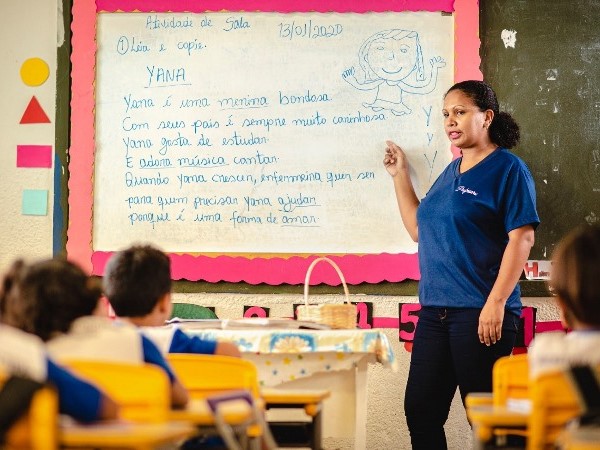 Atividade de Sala 13/01/2020
① Leia e copie.
YANA
Yana é uma menina bondosa
Com seus pais é sempre muito carinhosa
Yana gosta de estudar
E adora música cantar.
Quando Yana crescer, enfermeira quer ser
para quem precisar Yana ajudar
porque é uma forma de amar.
Y
Y
Y
5